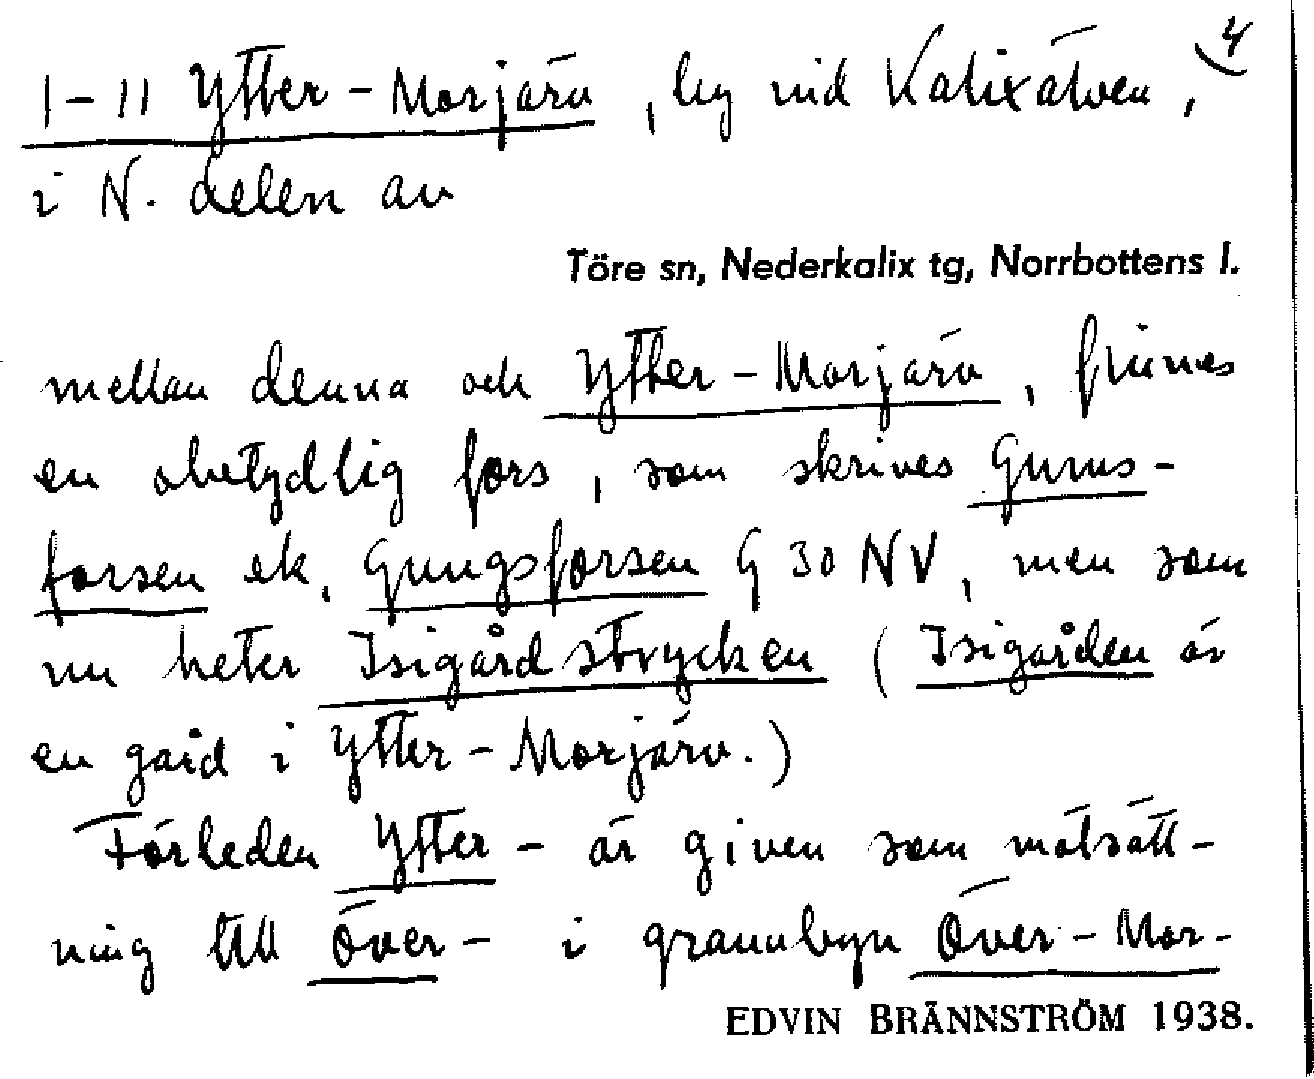 4
1-11 Ytter-Morjärv, by vid Kalixälven,
i N. delen av
Töre sn, Nederkalix tg, Norrbottens l.
mellan denna och Ytter-Morjärv, finnes
en obetydlig fors, som skrives Gruns-
forsen ek, Gungsforsen G 30 NV, men som
nu heter Isigårdstrycken (Isigården är
en gård i Ytter-Morjärv.)
Förleden Ytter- är given som motsätt-
ning till Över- i grannbyn Över-Mor-
EDVIN BRÄNNSTRÖM 1938.